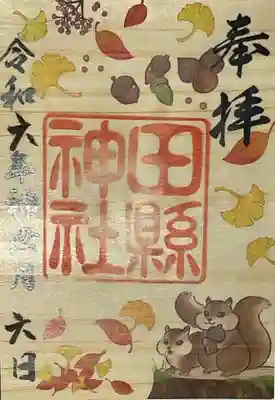 奉拝
田縣
神社
令和六年 月六日